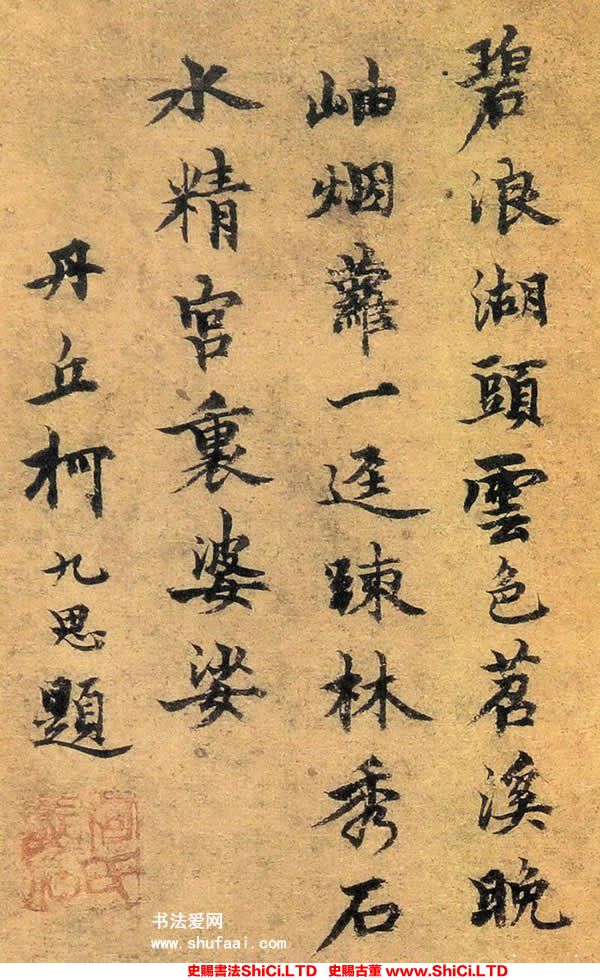 碧浪湖頭雲色苕溪晚
岫烟蘿一逕踈林秀石
水精宮裏婆娑
丹丘柯九思題
柯氏敬仲
书法爱网
www.shufaai.com
史賜書法ShiCi.LTD 史賜古董 www.ShiCi.LTD